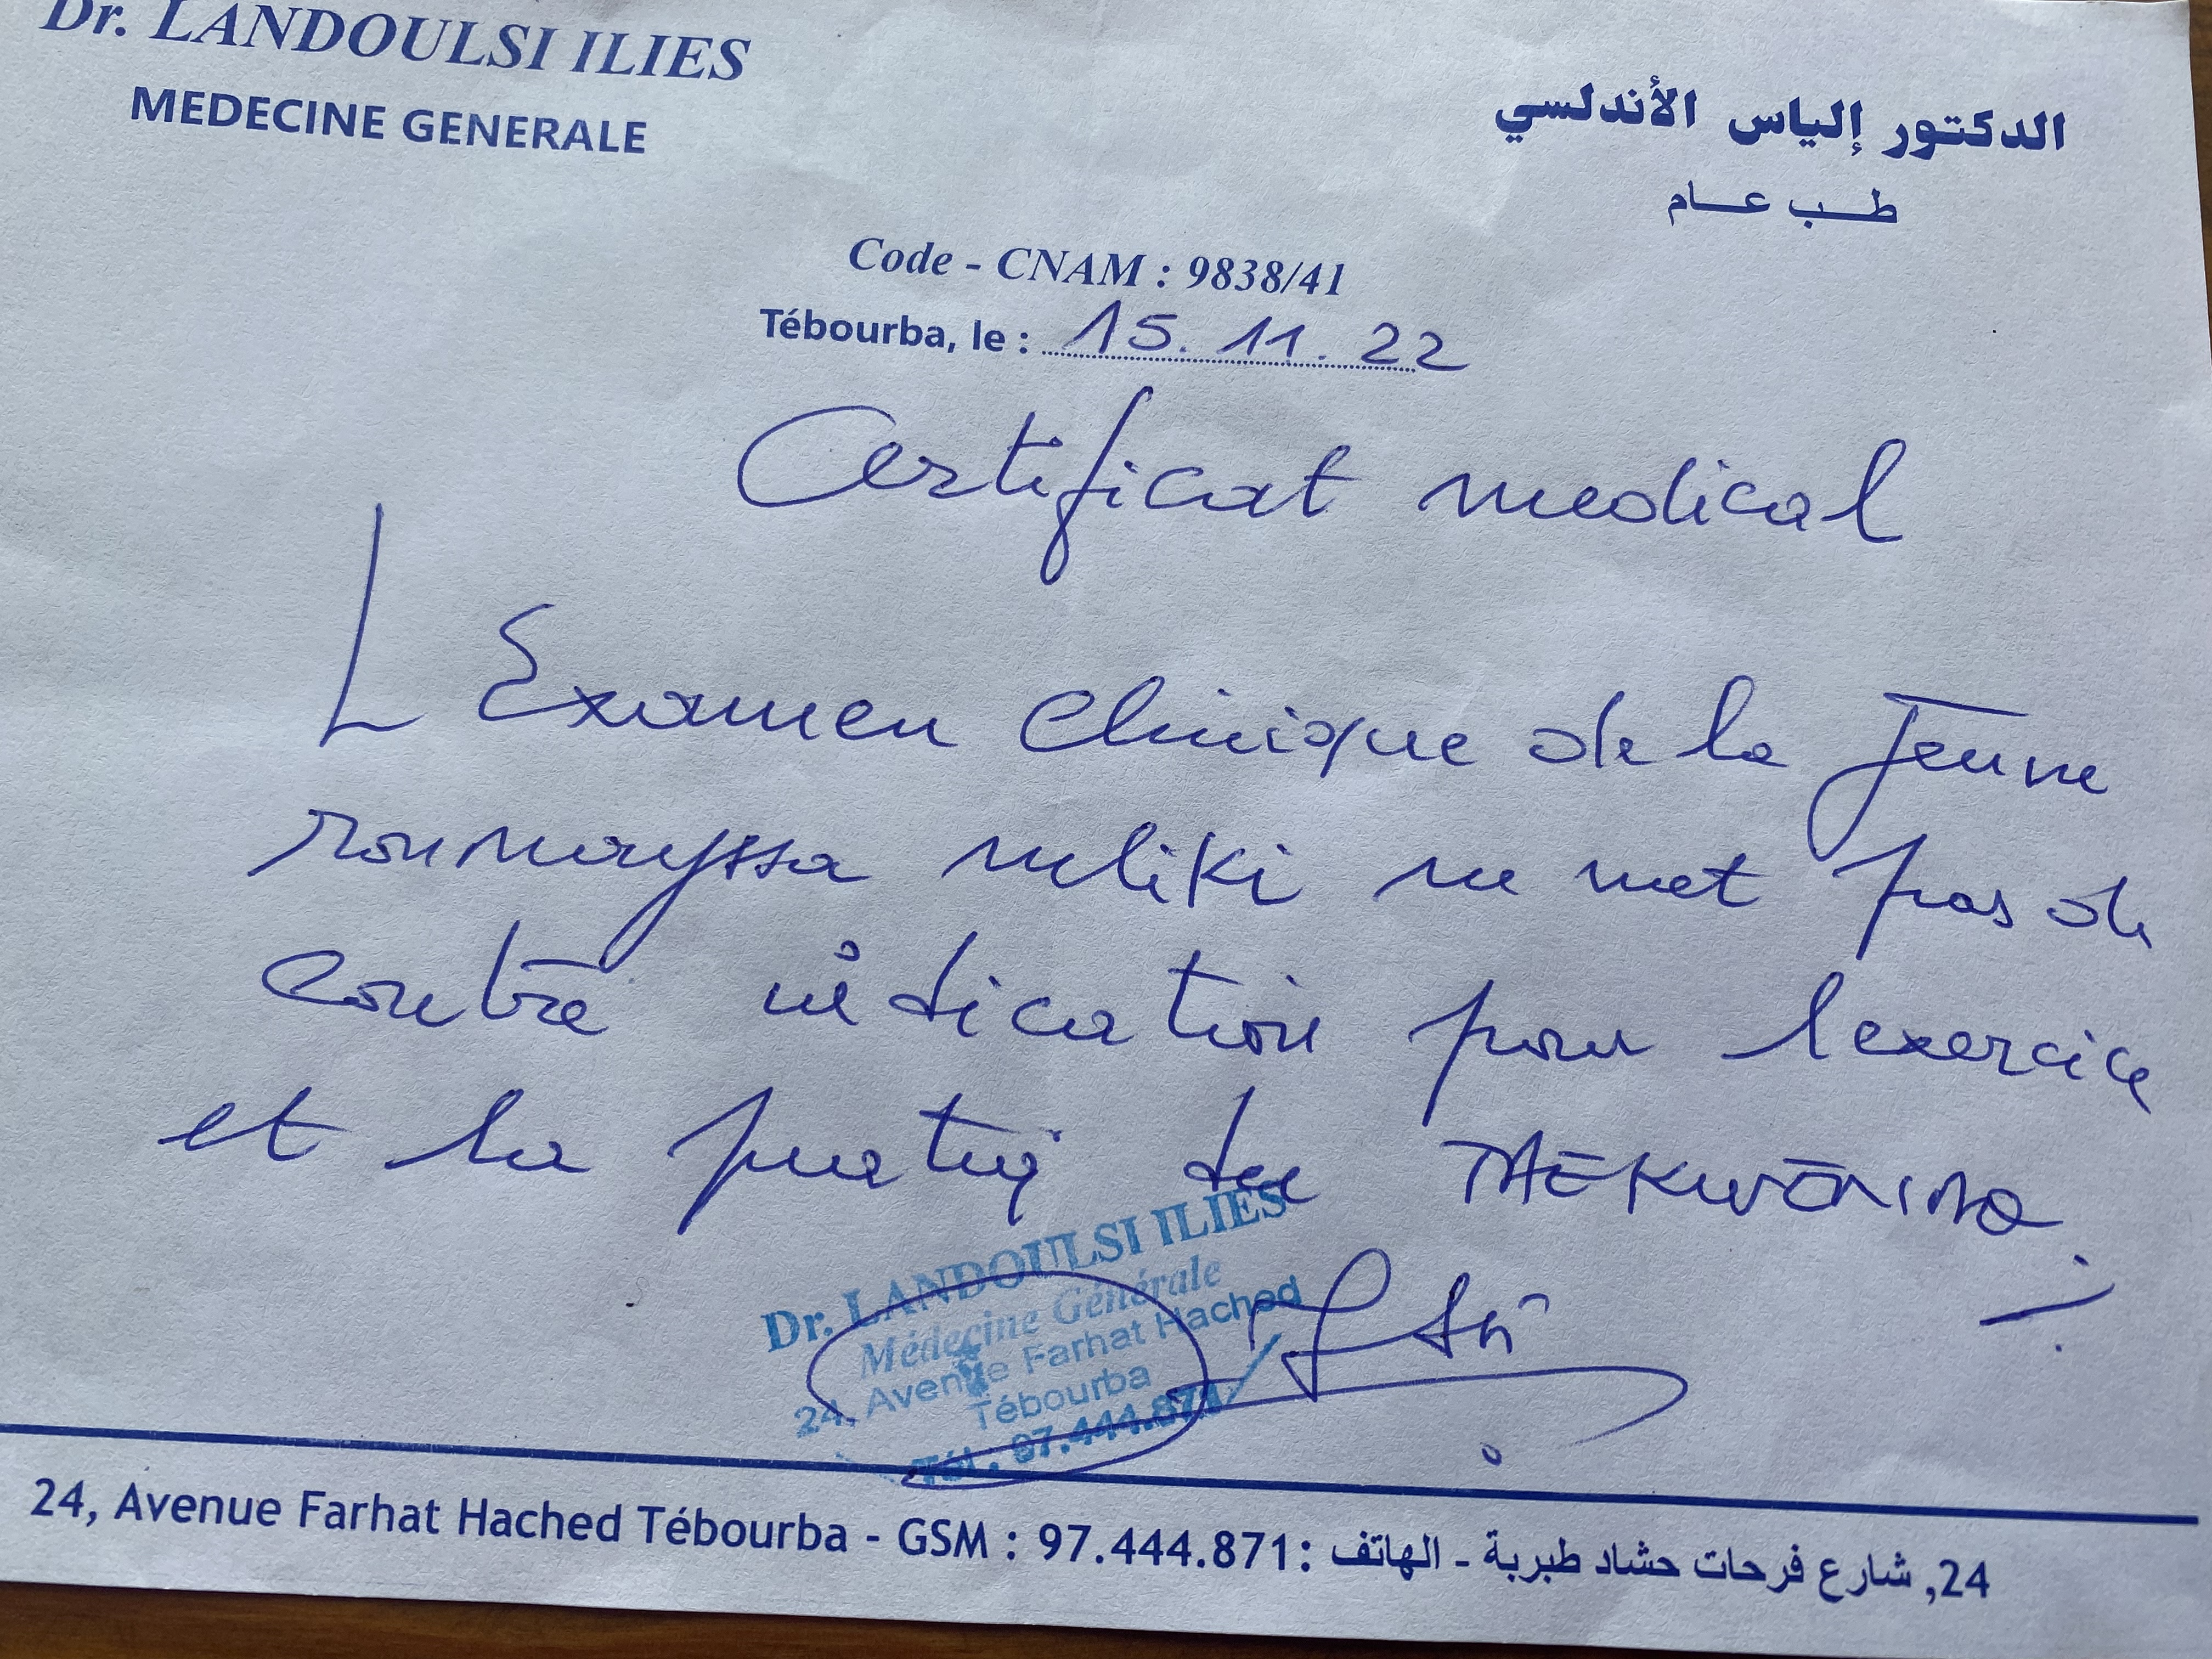 Dr. LANDOULSI ILIES
MEDECINE GENERALE
الدكتور إلياس الأندلسي
طب عام
Code - CNAM : 9838/41
Tébourba, le : 15.11.22
Certificat medical
L Examen clinique de la Jeune
roumayssa mliki ne met pas de
contre indication pour l exercice
et la pratiq du TAEKWENDO
Dr. LANDOULSI ILIES
Médecine Générale
24, Avenue Farhat Hached
Tébourba
Tél. 97.444.871
24, Avenue Farhat Hached Tébourba - GSM : 97.444.871 : 24, شارع فرحات حشاد طبربة - الهاتف